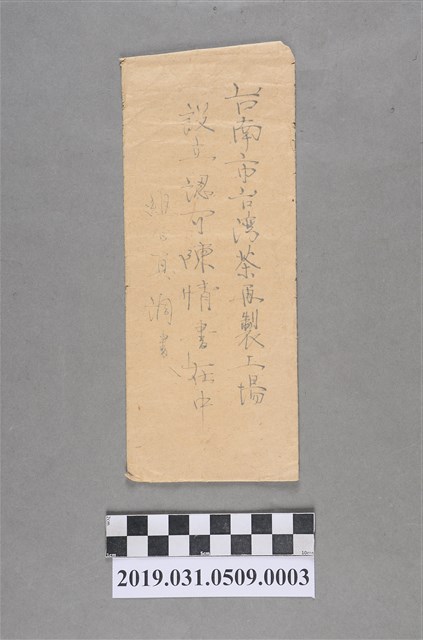 台南市台湾茶再製工場
設立認可陳情書在中
書
1cm
5cm
10cm
2019.031.0509.0003